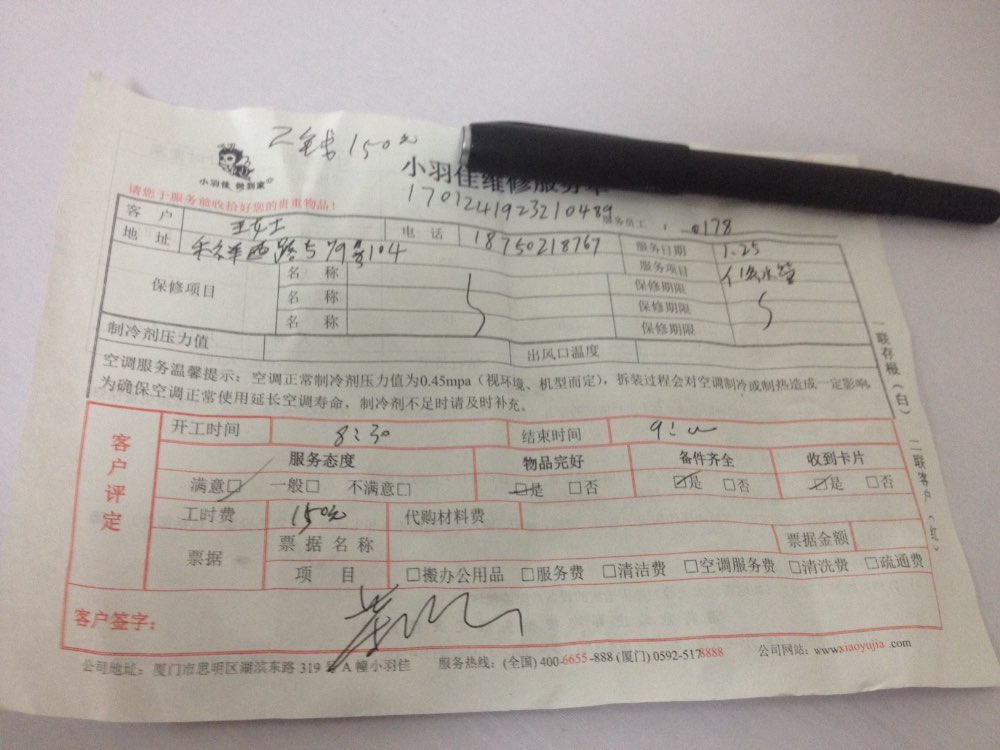 150元
小羽佳 做到家
小羽佳维修服务单
请您于服务前收拾好您的贵重物品!
1701241923210489
服务员工: 0178
客户 王女士 电话 18750218767 服务日期 1.25
地址 西路579号104 服务项目 水管
保修项目 名称 保修期限
名称 保修期限
名称 保修期限
制冷剂压力值 出风口温度
空调服务温馨提示:空调正常制冷剂压力值为0.45mpa(视环境、机型而定),拆装过程会对空调制冷或制热造成一定影响,
为确保空调正常使用延长空调寿命,制冷剂不足时请及时补充。
一联存根(白) 二联客户(红)
客户评定
开工时间 8:30 结束时间 9:
服务态度 物品完好 备件齐全 收到卡片
满意□ 一般□ 不满意□ □是 □否 □是 □否 □是 □否
工时费 150元 代购材料费
票据 票据名称 票据金额
项目 □搬办公用品 □服务费 □清洁费 □空调服务费 □清洗费 □疏通费
客户签字:
公司地址:厦门市思明区湖滨东路 319 号 A 幢小羽佳 服务热线:(全国) 400-6655-888 (厦门) 0592-5178888 公司网站:www.xiaoyujia.com